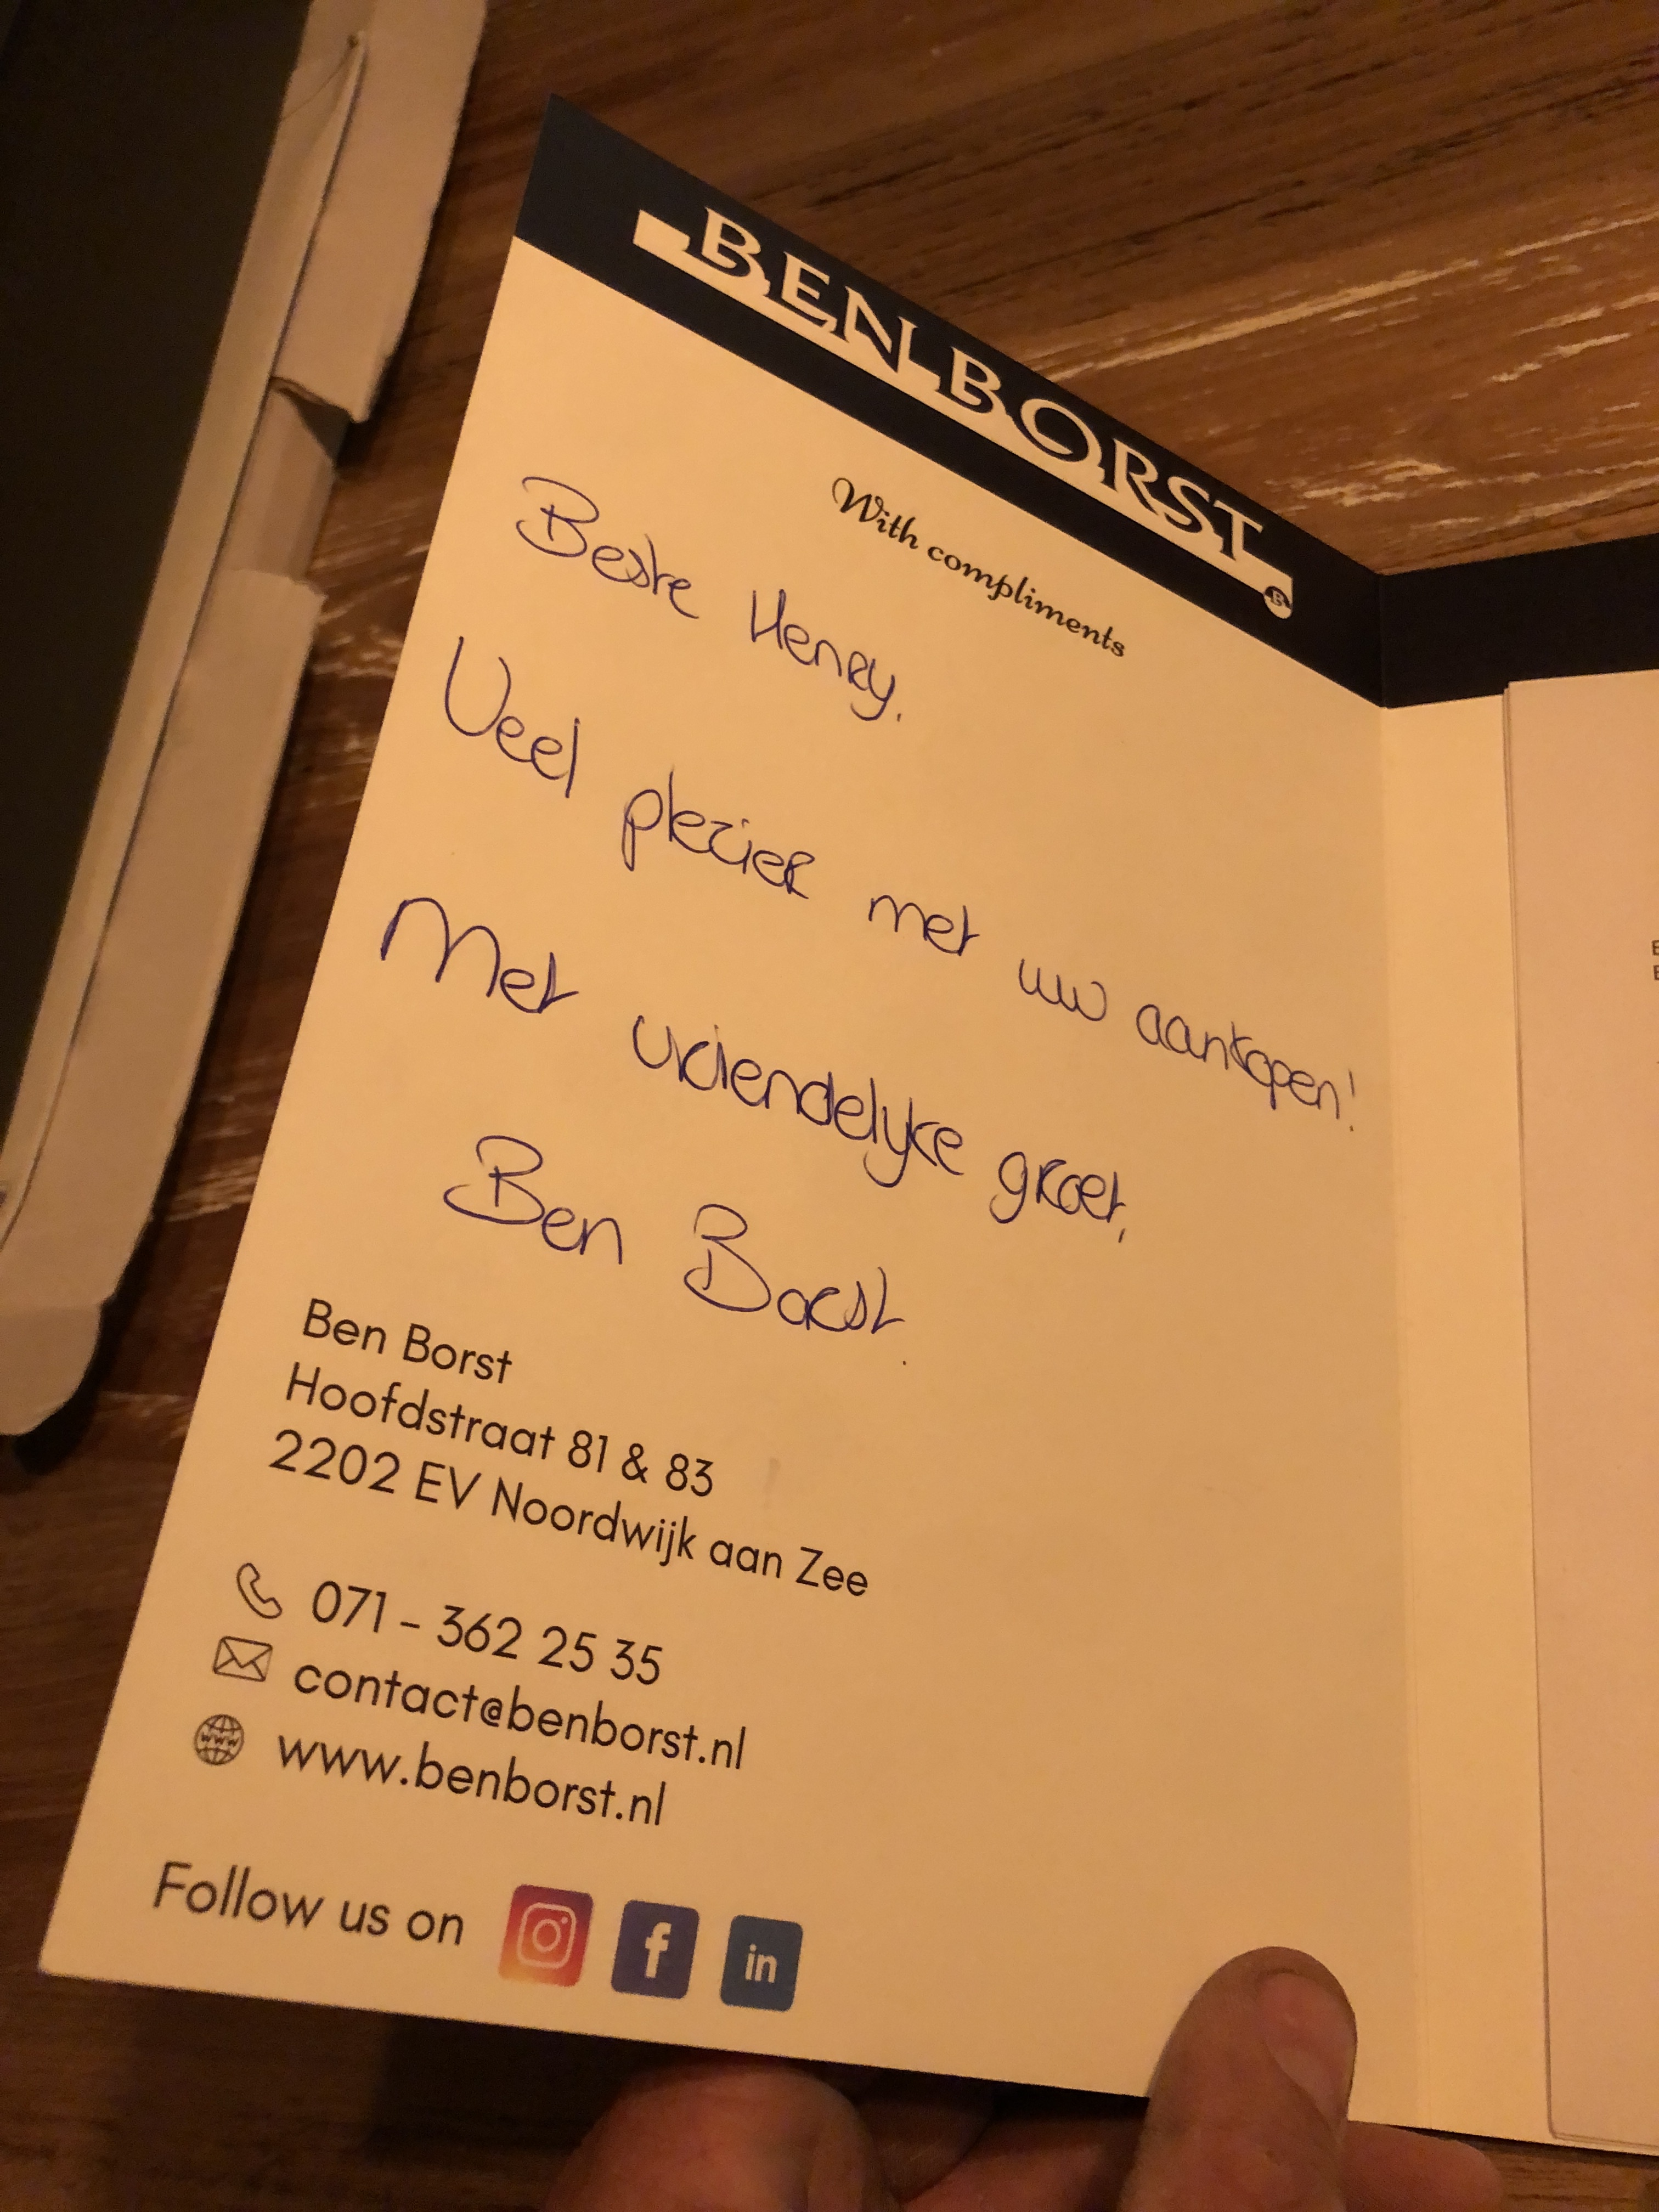 BEN BORST
B
With compliments
Beste Henry,
Veel plezier met uw aankopen!
Met vriendelyke groet,
Ben Borst.
Ben Borst
Hoofdstraat 81 & 83
2202 EV Noordwijk aan Zee
071 - 362 25 35
contact@benborst.nl
www
www.benborst.nl
Follow us on
f
in